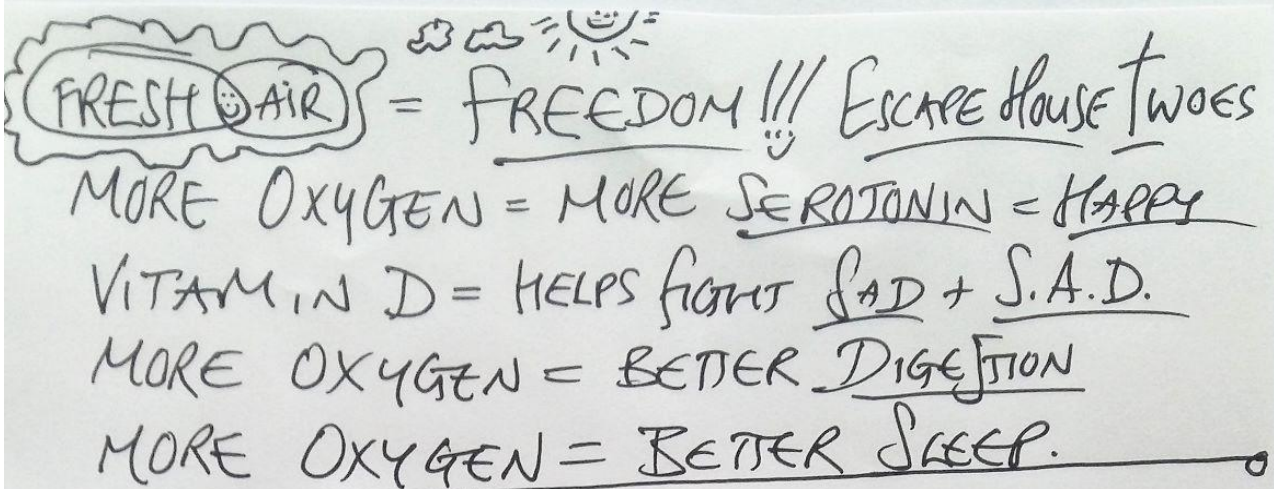 FRESH AIR = FREEDOM!!! ESCAPE HOUSE TWOES
MORE OXYGEN = MORE SEROTONIN = HAPPY
VITAMIN D = HELPS FIGHT SAD + S.A.D.
MORE OXYGEN = BETTER DIGESTION
MORE OXYGEN = BETTER SLEEP.